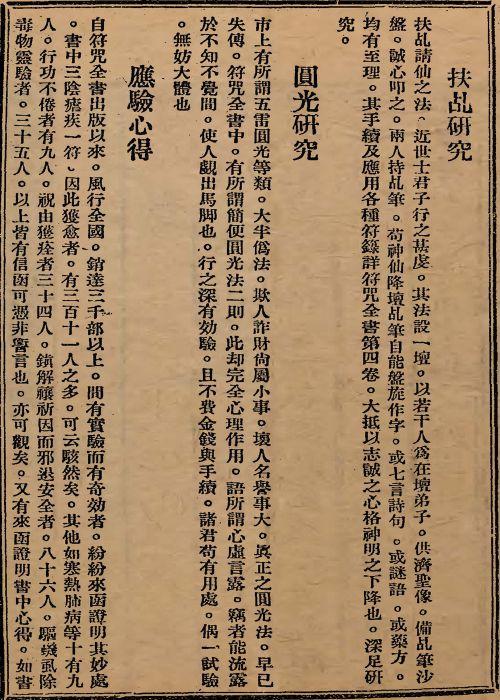 扶乩研究
扶乩請仙之法。近世士君子行之甚虔。其法設一壇。以若干人爲在壇弟子。供濟聖像。備乩筆沙
盤。誠心叩之。兩人持乩筆。苟神仙降壇乩筆自能盤旋作字。或七言詩句。或謎語。或藥方。
均有至理。其手續及應用各種符籙詳符咒全書第四卷。大抵以志誠之心格神明之下降也。深足研
究。
圓光研究
市上有所謂五雷圓光等類。大半僞法。欺人詐財尙屬小事。壞人名譽事大。眞正之圓光法。早已
失傳。符咒全書中。有所謂簡便圓光法二則。此却完全心理作用。語所謂心虛言露。竊者能流露
於不知不覺間。使人覷出馬脚也。行之深有効驗。且不費金錢與手續。諸君苟有用處。偶一試驗
。無妨大體也
應驗心得
自符咒全書出版以來。風行全國。銷達三千部以上。間有實驗而有奇効者。紛紛來函證明其妙處
。書中三陰瘧疾一符。因此獲愈者。有三百十一人之多。可云駭然矣。其他如寒熱肺病等十有九
人。行功不倦者有九人。祝由獲痊者三十四人。鎮解禳祈因而邪退安全者。八十六人。驅蟣虱除
毒物靈驗者。三十五人。以上皆有信函可憑非誓言也。亦可觀矣。又有來函證明書中心得。如書